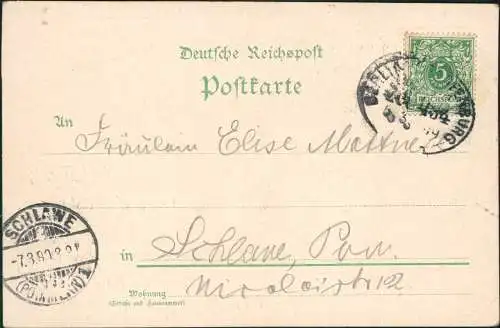 Deutsche Reichspost
Postkarte
5
REICHSPOST
BERLIN
BURG
An
Fräulein Elise Mattner
SCHLAWE
(POMMERN)
in Schlawe, Pom.
Nicolaistr 12
Wohnung
(Straße und Hausnummer)